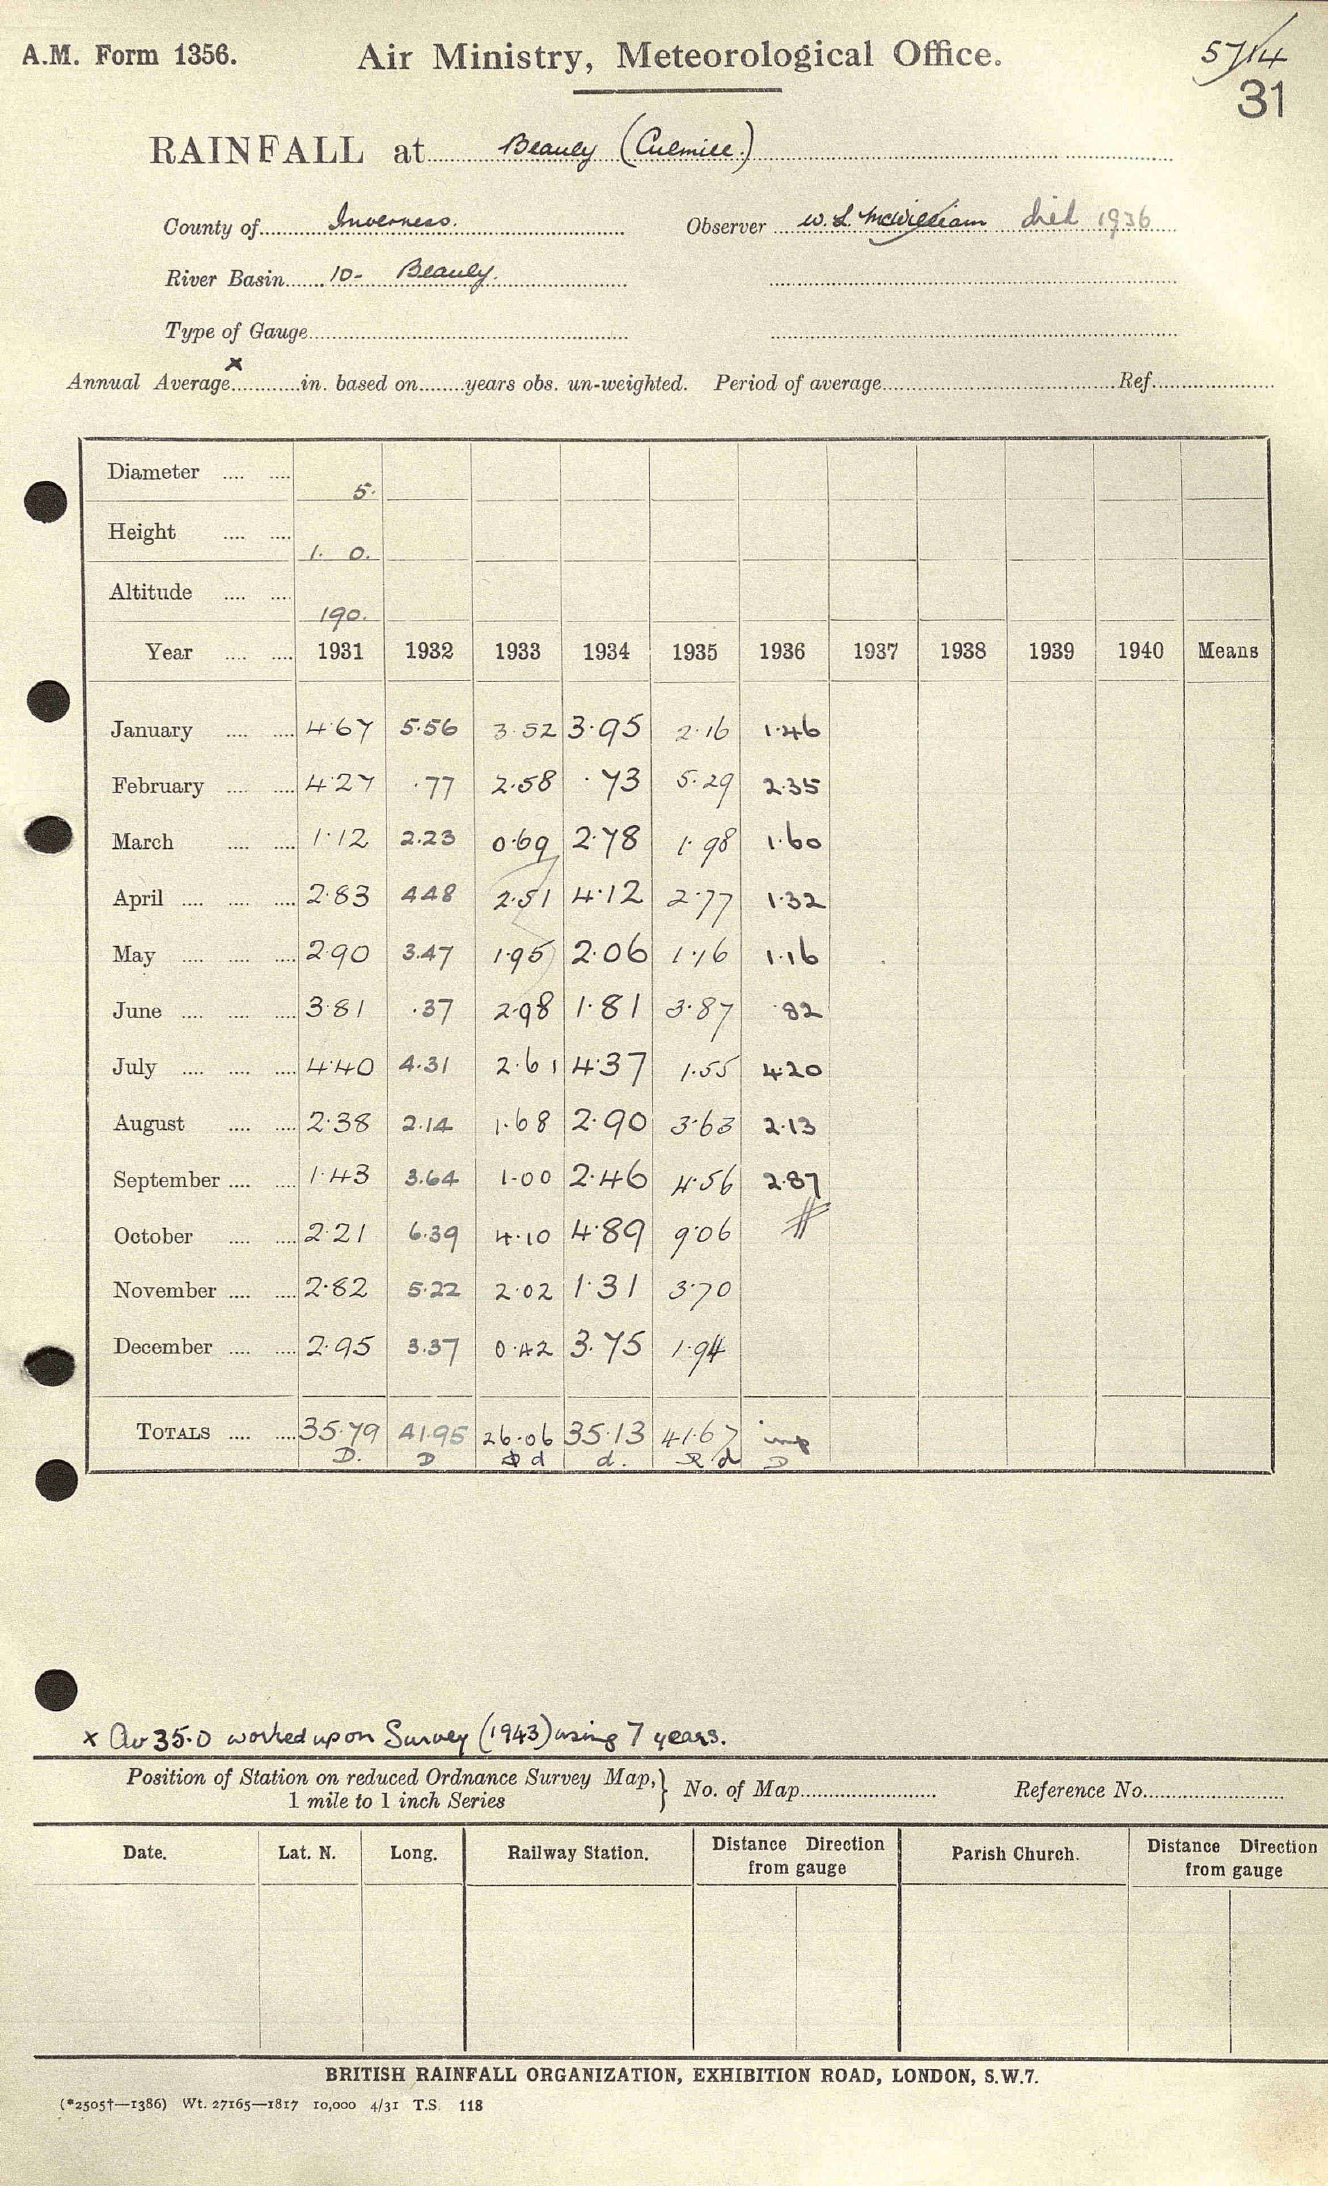 A.M. Form 1356. Air Ministry, Meteorological Office. 57/14
31
RAINFALL at Beauly (Culmill.)
County of Inverness. Observer W. L. McWilliam died 1936
River Basin 10- Beauly.
Type of Gauge
x
Annual Average in. based on years obs. un-weighted. Period of average Ref.
Diameter 5.
Height 1. 0.
Altitude 190.
Year 1931 1932 1933 1934 1935 1936 1937 1938 1939 1940 Means
January 4.67 5.56 3.52 3.95 2.16 1.46
February 4.27 .77 2.58 .73 5.29 2.35
March 1.12 2.23 0.69 2.78 1.98 1.60
April 2.83 4.48 2.51 4.12 2.77 1.32
May 2.90 3.47 1.95 2.06 1.16 1.16
June 3.81 .37 2.98 1.81 3.87 .82
July 4.40 4.31 2.61 4.37 1.55 4.20
August 2.38 2.14 1.68 2.90 3.63 2.13
September 1.43 3.64 1.00 2.46 4.56 2.87
October 2.21 6.39 4.10 4.89 9.06
November 2.82 5.22 2.02 1.31 3.70
December 2.95 3.37 0.42 3.75 1.94
TOTALS 35.79 41.95 26.06 35.13 41.67 imp
D. D d d. d D
x Av 35.0 worked upon Survey (1943) using 7 years.
Position of Station on reduced Ordnance Survey Map, } No. of Map Reference No.
1 mile to 1 inch Series
Date. Lat. N. Long. Railway Station. Distance Direction Parish Church. Distance Direction
from gauge from gauge
BRITISH RAINFALL ORGANIZATION, EXHIBITION ROAD, LONDON, S.W.7.
(*2505†—1386) Wt. 27165—1817 10,000 4/31 T.S. 118